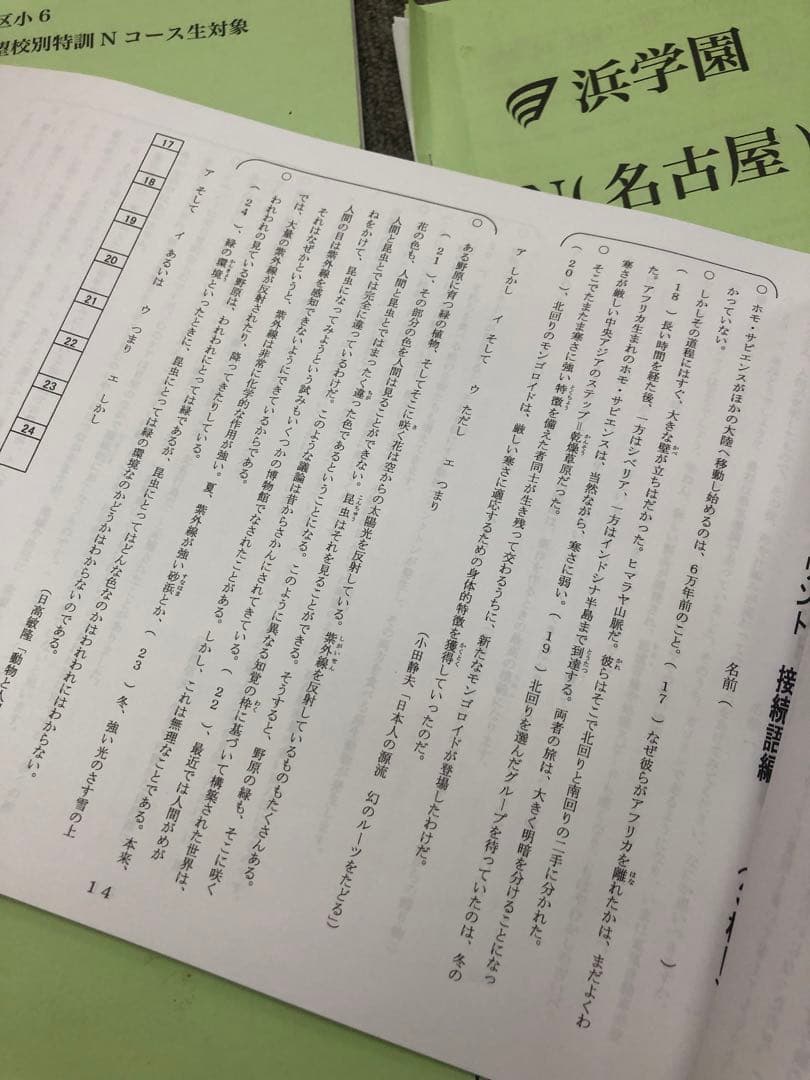 区小6
望校別特訓Nコース生対象
浜学園
N(名古屋)
接続語編
名前(
)
○ ホモ・サピエンスがほかの大陸へ移動し始めるのは、6万年前のこと。( 17 )なぜ彼らがアフリカを離れたかは、まだよくわ
かっていない。
○ しかしその道程にはすぐ、大きな壁が立ちはだかった。ヒマラヤ山脈だ。彼らはそこで北回りと南回りの二手に分かれた。
( 18 )長い時間を経た後、一方はシベリア、一方はインドシナ半島まで到達する。両者の旅は、大きく明暗を分けることになっ
た。アフリカ生まれのホモ・サピエンスは、当然ながら、寒さに弱い。( 19 )北回りを選んだグループを待っていたのは、冬の
寒さが厳しい中央アジアのステップ=乾燥草原だった。
○ そこでたまたま寒さに強い特徴を備えた者同士が生き残って交わるうちに、新たなモンゴロイドが登場したわけだ。
( 20 )、北回りのモンゴロイドは、厳しい寒さに適応するための身体的特徴を獲得していったのだ。
(小田静夫「日本人の源流 幻のルーツをたどる」)
ア しかし イ そして ウ ただし エ つまり
○ ある野原に育つ緑の植物、そしてそこに咲く花は空からの太陽光を反射している。紫外線を反射しているものもたくさんある。
( 21 )、その部分の色を人間は見ることができない。昆虫はそれを見ることができる。そうすると、野原の緑も、そこに咲く
花の色も、人間と昆虫とではまったく違った色であるということになる。このように異なる知覚の枠に基づいて構築された世界は、
人間と昆虫とでは完全に違っているわけだ。このような議論は昔からさかんにされてきている。( 22 )、最近では人間がめが
ねをかけて、昆虫になってみようという試みもいくつかの博物館でなされたことがある。しかし、これは無理なことである。本来、
人間の目は紫外線を感知できないようにできているからである。
それはなぜかというと、紫外線は非常に化学的な作用が強い。夏、紫外線が強い砂浜とか、( 23 )冬、強い光のさす雪の上
では、大量の紫外線が反射されたり、降ってきたりしている。
○ われわれの見ている野原は、われわれにとっては緑であるが、昆虫にとってはどんな色なのかはわれわれにはわからない。
( 24 )、緑の環境といったときに、昆虫にとっては緑の環境なのかどうかはわからないのである。
(日高敏隆「動物と人
ア そして イ あるいは ウ つまり エ しかし
17
18
19
20
21
22
23
24
14